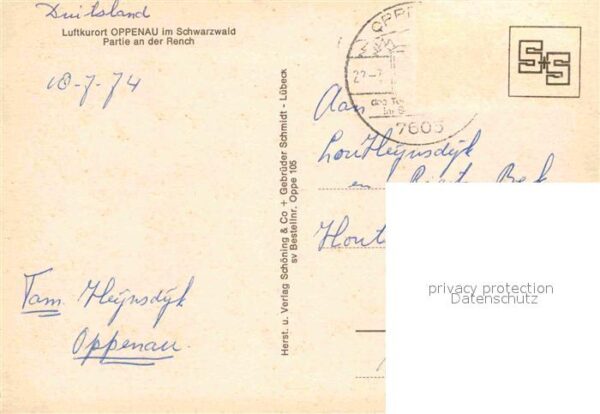 Duitsland
Luftkurort OPPENAU im Schwarzwald
Partie an der Rench
18-7-74
Fam. Heijnsdijk
Oppenau.
Herst. u. Verlag Schöning & Co + Gebrüder Schmidt - Lübeck
sv Bestellnr. Oppe 105
OPP
22-7
7603
S+S
Aan
Lou Heijnsdijk
en
Hout
privacy protection
Datenschutz